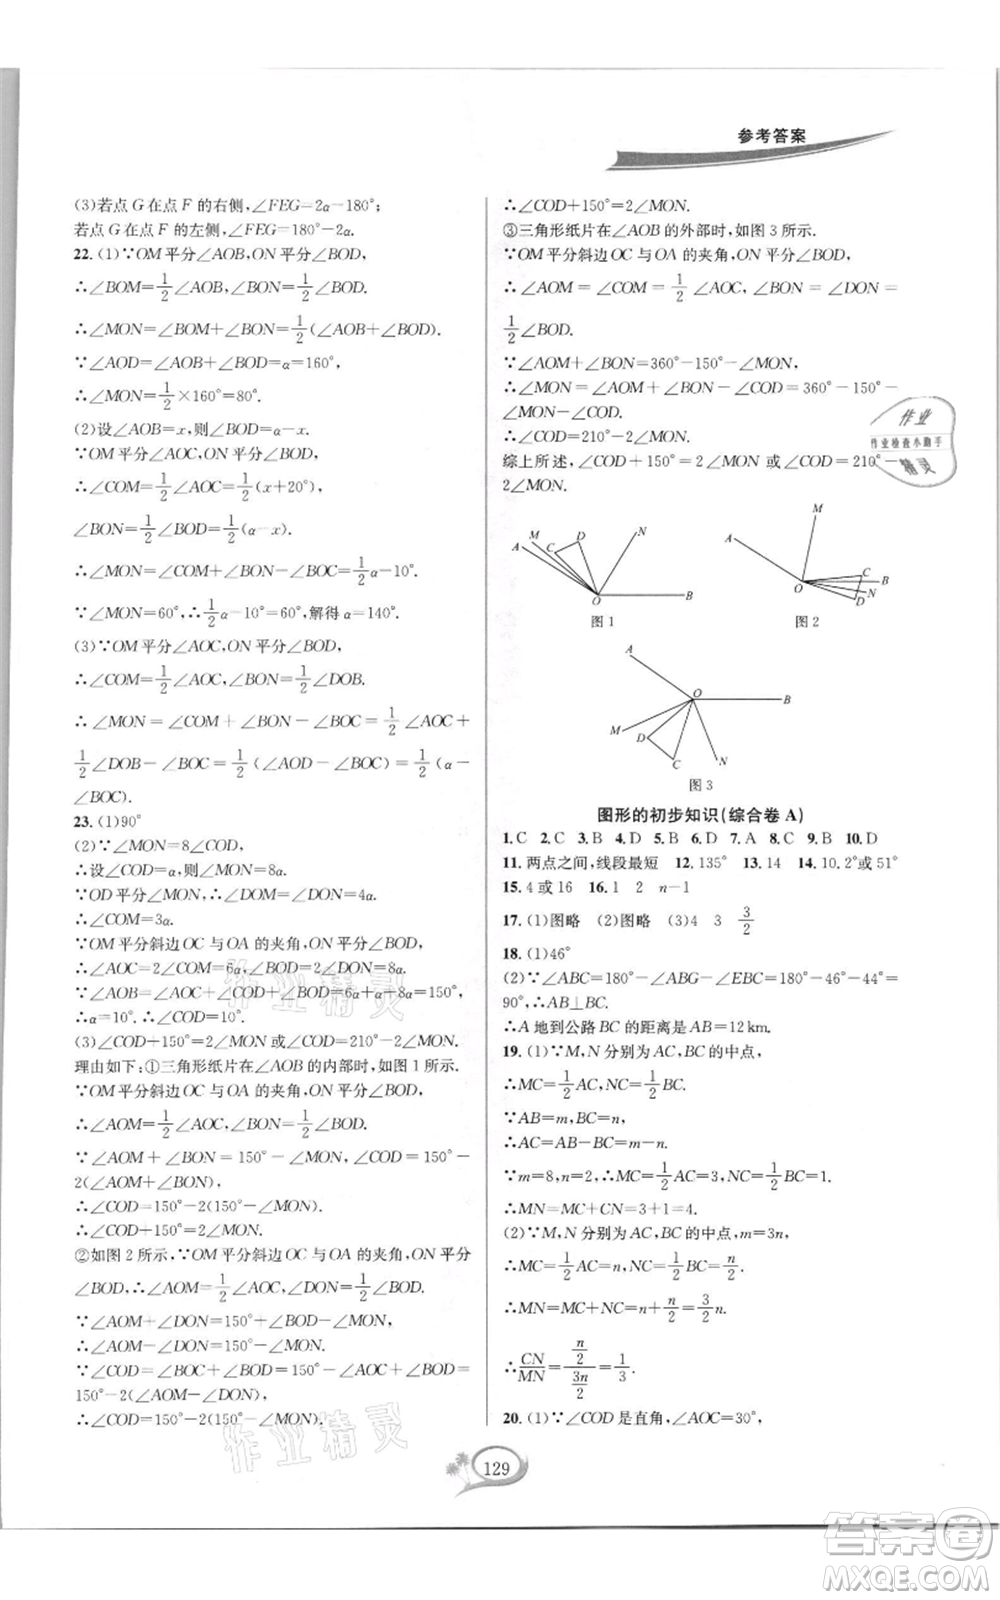 参考答案
(3)若点 G 在点 F 的右侧,∠FEG=2α-180°;
若点 G 在点 F 的左侧,∠FEG=180°-2α.
22. (1)∵OM平分∠AOB,ON平分∠BOD,
∴∠BOM=1/2∠AOB,∠BON=1/2∠BOD.
∴∠MON=∠BOM+∠BON=1/2(∠AOB+∠BOD).
∵∠AOD=∠AOB+∠BOD=α=160°,
∴∠MON=1/2×160°=80°.
(2)设∠AOB=x,则∠BOD=α-x.
∵OM平分∠AOC,ON平分∠BOD,
∴∠COM=1/2∠AOC=1/2(x+20°),
∠BON=1/2∠BOD=1/2(α-x).
∴∠MON=∠COM+∠BON-∠BOC=1/2α-10°.
∵∠MON=60°,∴1/2α-10°=60°,解得α=140°.
(3)∵OM平分∠AOC,ON平分∠BOD,
∴∠COM=1/2∠AOC,∠BON=1/2∠DOB.
∴∠MON=∠COM+∠BON-∠BOC=1/2∠AOC+
1/2∠DOB-∠BOC=1/2(∠AOD-∠BOC)=1/2(α-
∠BOC).
23. (1)90°
(2)∵∠MON=8∠COD,
∴设∠COD=α,则∠MON=8α.
∵OD平分∠MON,∴∠DOM=∠DON=4α,
∴∠COM=3α.
∵OM平分斜边OC与OA的夹角,ON平分∠BOD,
∴∠AOC=2∠COM=6α,∠BOD=2∠DON=8α.
∵∠AOB=∠AOC+∠COD+∠BOD=6α+α+8α=150°,
∴α=10°.∴∠COD=10°.
(3)∠COD+150°=2∠MON或∠COD=210°-2∠MON.
理由如下:①三角形纸片在∠AOB的内部时,如图1所示.
∵OM平分斜边OC与OA的夹角,ON平分∠BOD,
∴∠AOM=1/2∠AOC,∠BON=1/2∠BOD.
∵∠AOM+∠BON=150°-∠MON,∠COD=150°-
2(∠AOM+∠BON),
∴∠COD=150°-2(150°-∠MON).
∴∠COD+150°=2∠MON.
②如图2所示,∵OM平分斜边OC与OA的夹角,ON平分
∠BOD,∴∠AOM=1/2∠AOC,∠DON=1/2∠BOD.
∵∠AOM+∠DON=150°-∠BOD+∠MON,
∴∠AOM-∠DON=150°-∠MON.
∵∠COD=∠BOC+∠BOD=150°-∠AOC+∠BOD=
150°-2(∠AOM-∠DON),
∴∠COD=150°-2(150°-∠MON).
∴∠COD+150°=2∠MON.
③三角形纸片在∠AOB的外部时,如图3所示.
∵OM平分斜边OC与OA的夹角,ON平分∠BOD,
∴∠AOM=∠COM=1/2∠AOC,∠BON=∠DON=
1/2∠BOD.
∵∠AOM+∠BON=360°-150°-∠MON,
∴∠MON=∠AOM+∠BON-∠COD=360°-150°-
∠MON-∠COD.
∴∠COD=210°-2∠MON.
综上所述,∠COD+150°=2∠MON或∠COD=210°-
2∠MON.
A M C D N O B
图1
M A O C B N D
图2
A O B M D C N
图3
图形的初步知识(综合卷A)
1.C 2.C 3.B 4.D 5.B 6.D 7.A 8.C 9.B 10.D
11.两点之间,线段最短 12.135° 13.14 14.10.2°或51°
15.4或16 16.1 2 n-1
17.(1)图略 (2)图略 (3)4 3 3/2
18.(1)46°
(2)∵∠ABC=180°-∠ABG-∠EBC=180°-46°-44°=
90°,∴AB⊥BC.
∴A地到公路BC的距离是AB=12 km.
19.(1)∵M,N分别为AC,BC的中点,
∴MC=1/2AC,NC=1/2BC.
∵AB=m,BC=n,
∴AC=AB-BC=m-n.
∵m=8,n=2,∴MC=1/2AC=3,NC=1/2BC=1.
∴MN=MC+CN=3+1=4.
(2)∵M,N分别为AC,BC的中点,m=3n,
∴MC=1/2AC=n,NC=1/2BC=1/2n.
∴MN=MC+NC=n+n/2=3/2n.
∴CN/MN=(n/2)/(3n/2)=1/3.
20.(1)∵∠COD是直角,∠AOC=30°,
129
作业
作业检查小助手
精灵
作业精灵
作业精灵
答案圈
MXQE.COM